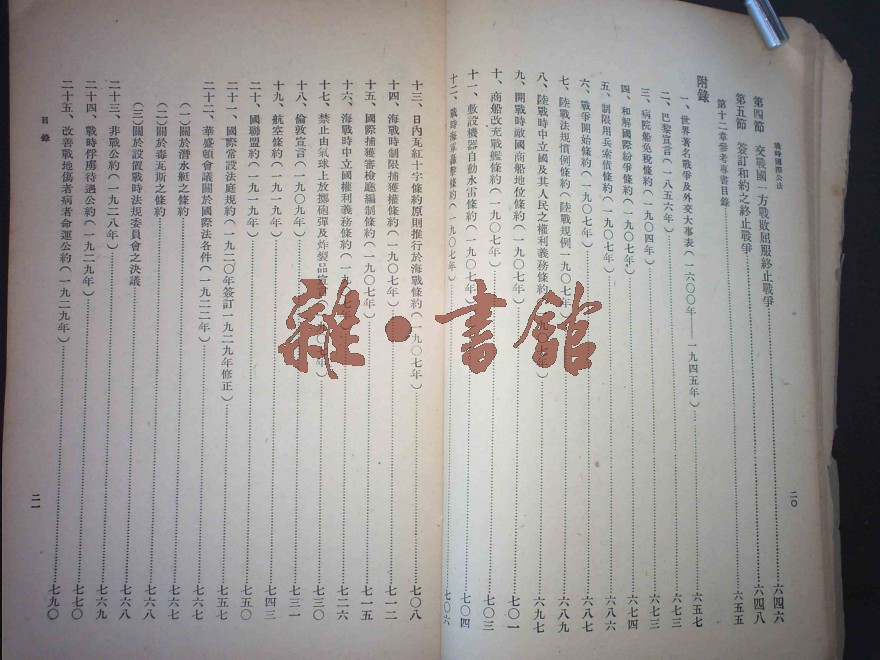 戰時國際公法
第四節 交戰國一方戰敗屈服終止戰爭……六四六
第五節 簽訂和約之終止戰爭……六四八
第十二章參考專書目錄……六五五
附錄
一、世界著名戰爭及外交大事表(一六〇〇年——一九四五年)……六五七
二、巴黎宣言(一八五六年)……六七三
三、病院船免稅條約(一九〇四年)……六七三
四、和解國際紛爭條約(一九〇七年)……六七四
五、制限用兵索債條約(一九〇七年)……六八六
六、戰爭開始條約(一九〇七年)……六八七
七、陸戰法規慣例條約(陸戰規例一九〇七年)……六八九
八、陸戰時中立國及其人民之權利義務條約(一九〇七年)……六九七
九、開戰時敵國商船地位條約(一九〇七年)……七〇一
十、商船改充戰艦條約(一九〇七年)……七〇三
十一、敷設機器自動水雷條約(一九〇七年)……七〇四
十二、戰時海軍轟擊條約(一九〇七年)……七〇六
二〇
十三、日內瓦紅十字條約原則推行於海戰條約(一九〇七年)……七〇八
十四、海戰時制限捕獲權條約(一九〇七年)……七一二
十五、國際捕獲審檢廳編制條約(一九〇七年)……七一五
十六、海戰時中立國權利義務條約(一九〇七年)……七二六
十七、禁止由氣球上放擲砲彈及炸裂品宣言……七三〇
十八、倫敦宣言(一九〇九年)……七三一
十九、航空條約(一九一九年)……七四三
二十、國聯盟約(一九一九年)……七五〇
二十一、國際常設法庭規約(一九二〇年簽訂一九二九年修正)……七五七
二十二、華盛頓會議關於國際法各件(一九二二年)……七六七
(一)關於潛水艇之條約……七六七
(二)關於毒瓦斯之條約……七六八
(三)關於設置戰時法規委員會之決議……七六八
二十三、非戰公約(一九二八年)……七六九
二十四、戰時俘虜待遇公約(一九二九年)……七七〇
二十五、改善戰地傷者病者命運公約(一九二九年)……七九〇
目錄
二一
雜·書館